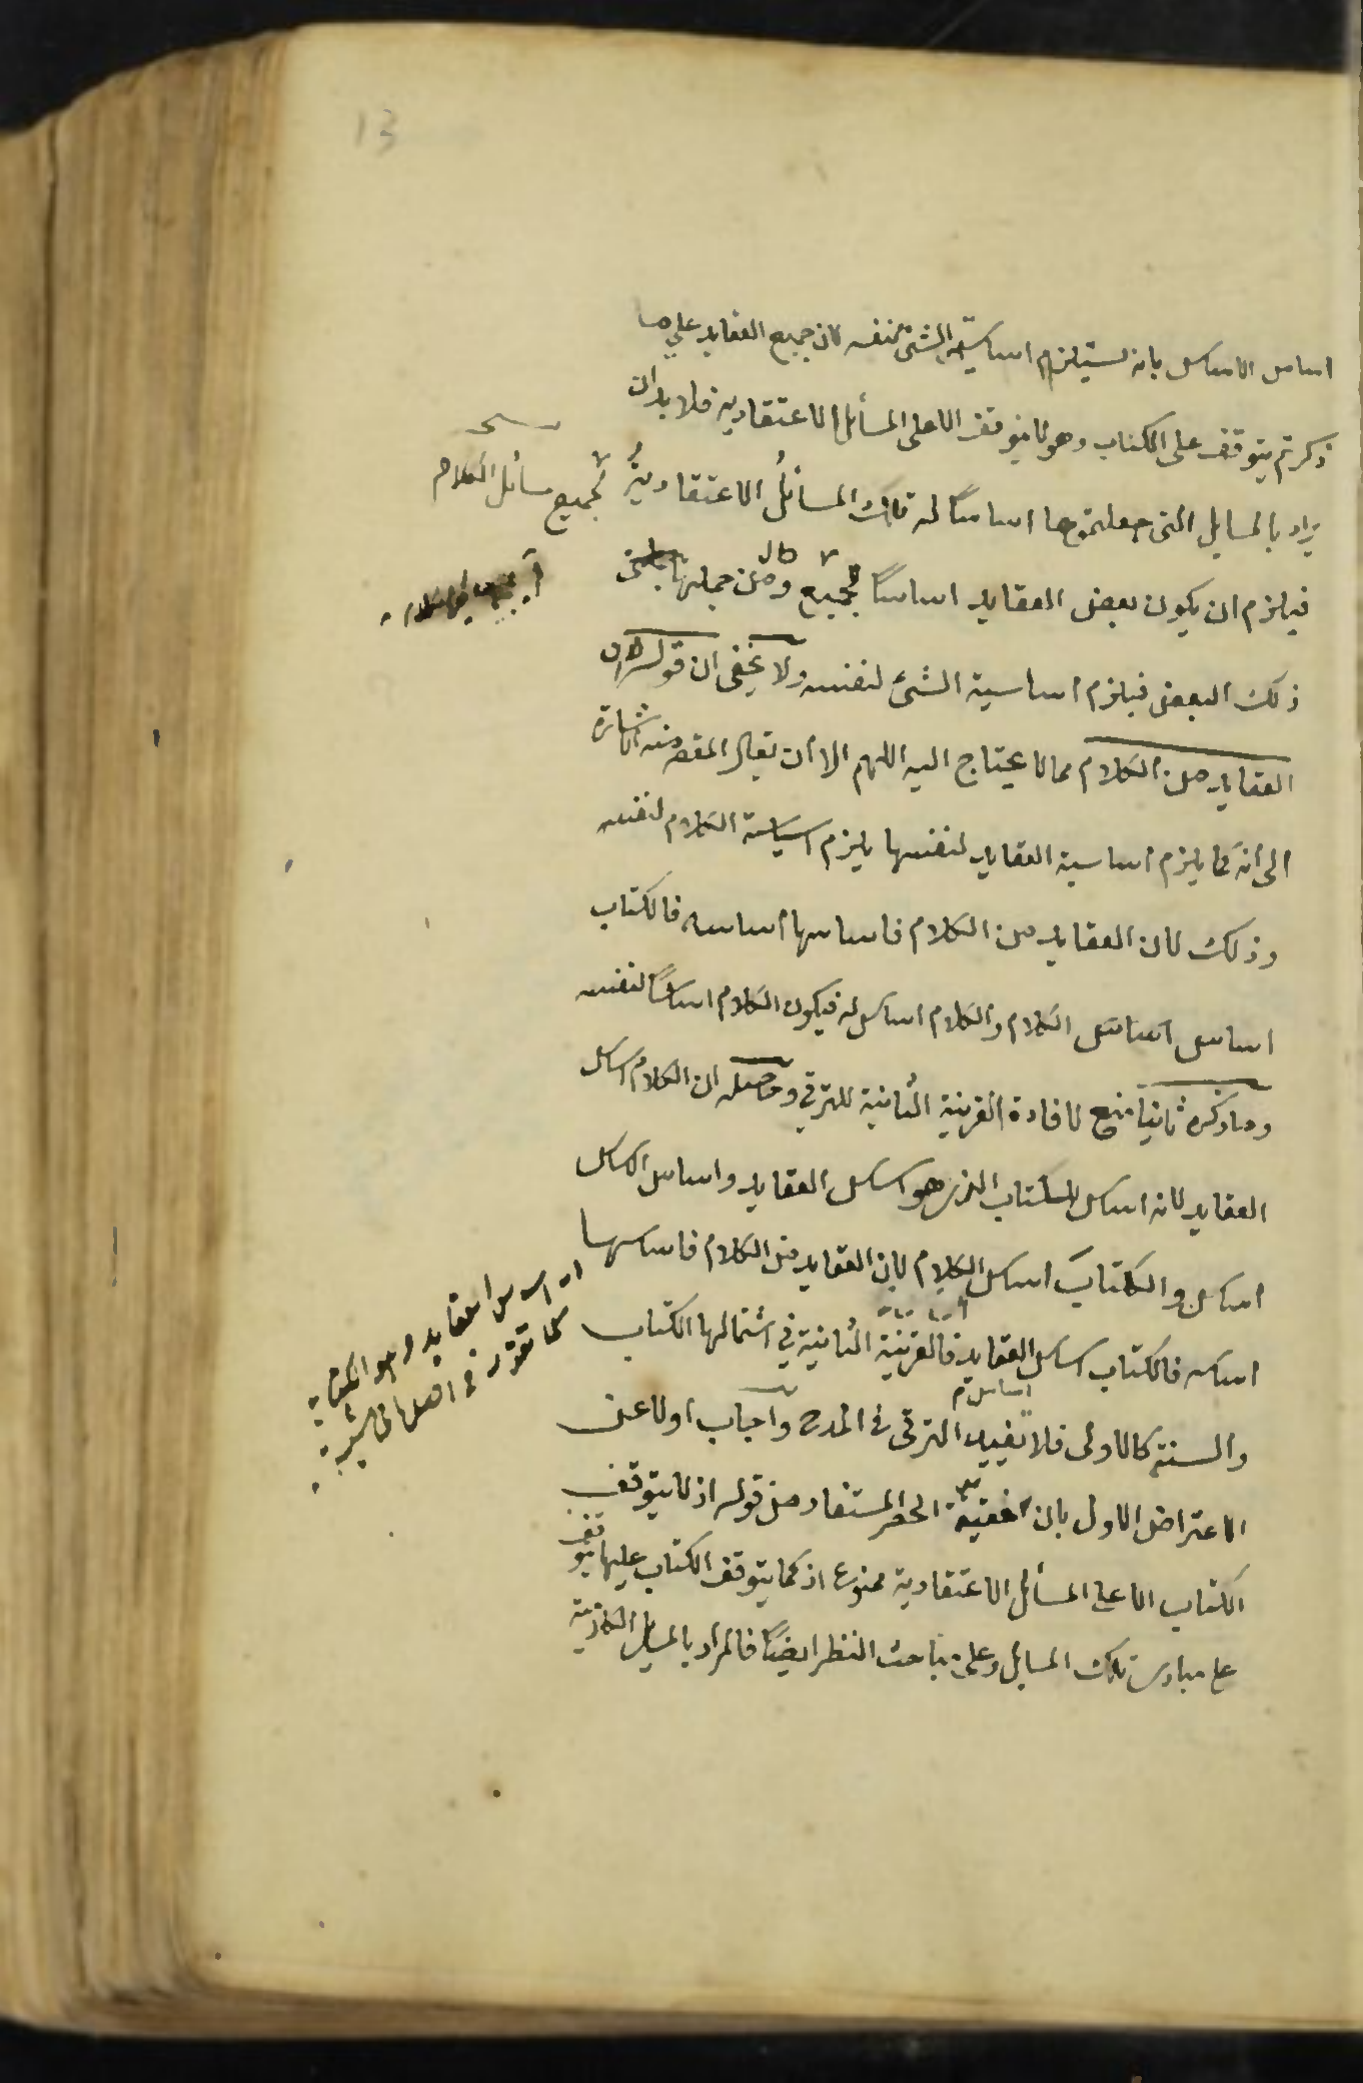 13
اساس الاساس بانه يستلزم اساسية الشئ لنفسه لان جميع العقايد على ما
ذكرتم يتوقف على الكتاب وهو لا يتوقف الا على المسائل الاعتقادية فلا بد ان
يراد بالمسايل التى جعلتموها اساسًا له تلك المسائلُ الاعتقاديةُ
لجميع مسائل الكلام
فيلزم ان يكون بعض العقايد اساسًا لجميع ومن جملتها
ذلك البعض فيلزم اساسية الشئ لنفسه ولا يخفى ان قوله لان
العقايد من الكلام مما لا يحتاج اليه اللهم الا أن يقال المقص منه اشارة
الى أنه كما يلزم اساسية العقايد لنفسها يلزم اساسية الكلام لنفسه
وذلك لان العقايد من الكلام فاساسها اساسه فالكتاب
اساس اساس الكلام والكلام اساس له فيكون الكلام اساسًا لنفسه
وما ذكره ثانيا منع لافادة القرينة الثانية للترقي وحاصله ان الكلام اساس
العقايد لانه اساس للكتاب الذى هو اساس العقايد واساس الاساس
اساس والكتابَ اساس الكلام لان العقايد من الكلام فاساسها
اساسه فالكتاب اساس العقايد فالقرينة الثانية في اشتمالها الكتاب
اساس العقايد وهو الكتاب
كما تقرر فى اصل الحاشية
اساس م
والسنة كالاولى فلا تفييد الترقى فى المدح واجاب اولا عن
الاعتراض الاول بان الحصر المستفاد من قوله اذ لا يتوقف
الكتاب الا على المسائل الاعتقادية ممنوع اذ كما يتوقف الكتاب عليها يتوقف
على مبادى تلك المسايل وعلى مباحث النظر ايضًا فالمراد بالمسايل الكلامية